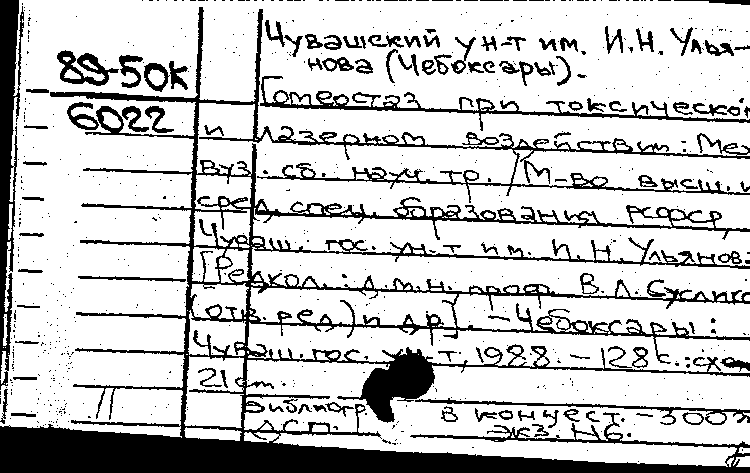 Чувашский ун-т им. И.Н. Улья-
89-50к
нова (Чебоксары).
Гомеостаз при токсическо
6022
и лазерном воздействии: Меж
вуз. сб. науч. тр. / М-во высш. и
сред. спец. образования РСФСР,
Чуваш. гос. ун-т им. И.Н. Ульянова
[Редкол.: д.м.н. проф. В.Л. Суслико
(отв. ред.) и др]. - Чебоксары:
Чуваш. гос. ун-т, 1988. - 128 с.: схе
21 см.
11
Библиогр. в конце ст. - 300
ДСП. экз. Н6.